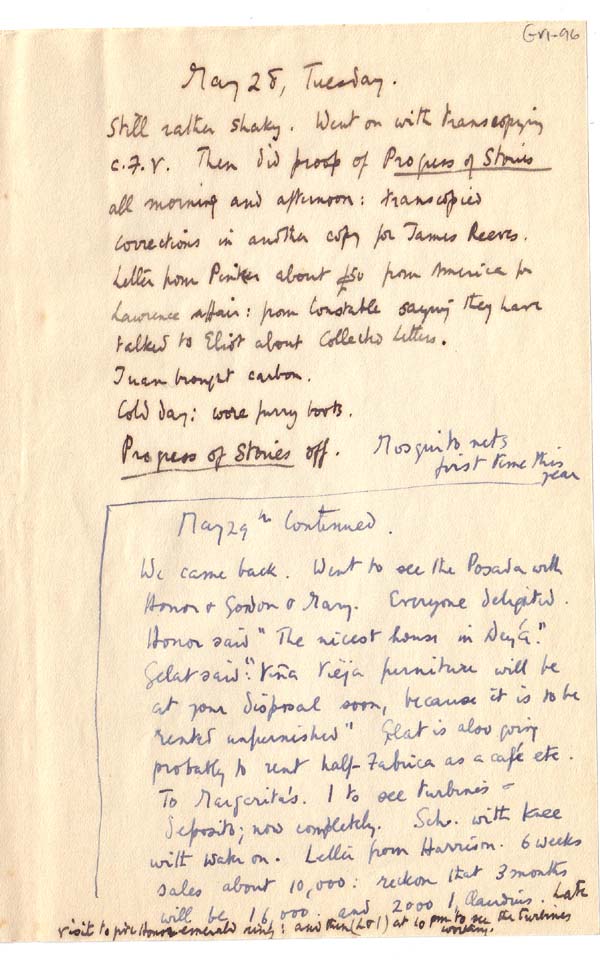 GVI-96
May 28, Tuesday.
Still rather shaky. Went on with transcopying
C.F.V. Then did proof of Progress of Stories
all morning and afternoon: transcopied
corrections in another copy for James Reeves.
Letter from Pinker about £50 from America for
Lawrence affair: from Constable saying they have
talked to Eliot about Collected Letters.
Juan brought carbon.
Cold day: wore furry boots.
Progress of Stories off. Mosquito nets
first time this
year
May 29th Continued.
We came back. Went to see the Posada with
Honor & Gordon & Mary. Everyone delighted.
Honor said "The nicest house in Deyá."
Gelat said: "Viña Vieja furniture will be
at your disposal soon, because it is to be
rented unfurnished" Gelat is also going
probably to rent half-Fabrica as a café etc.
To Margarita's. I to see turbines –
deposito; now completely. with
with water on. Letter from Harrison. 6 weeks
sales about 10,000: reckon that 3 months
will be 16,000. and 2000 I, Claudius. Late
visit to give Honor emerald ring! and then (L & I) at 10 pm to see the turbines
working.